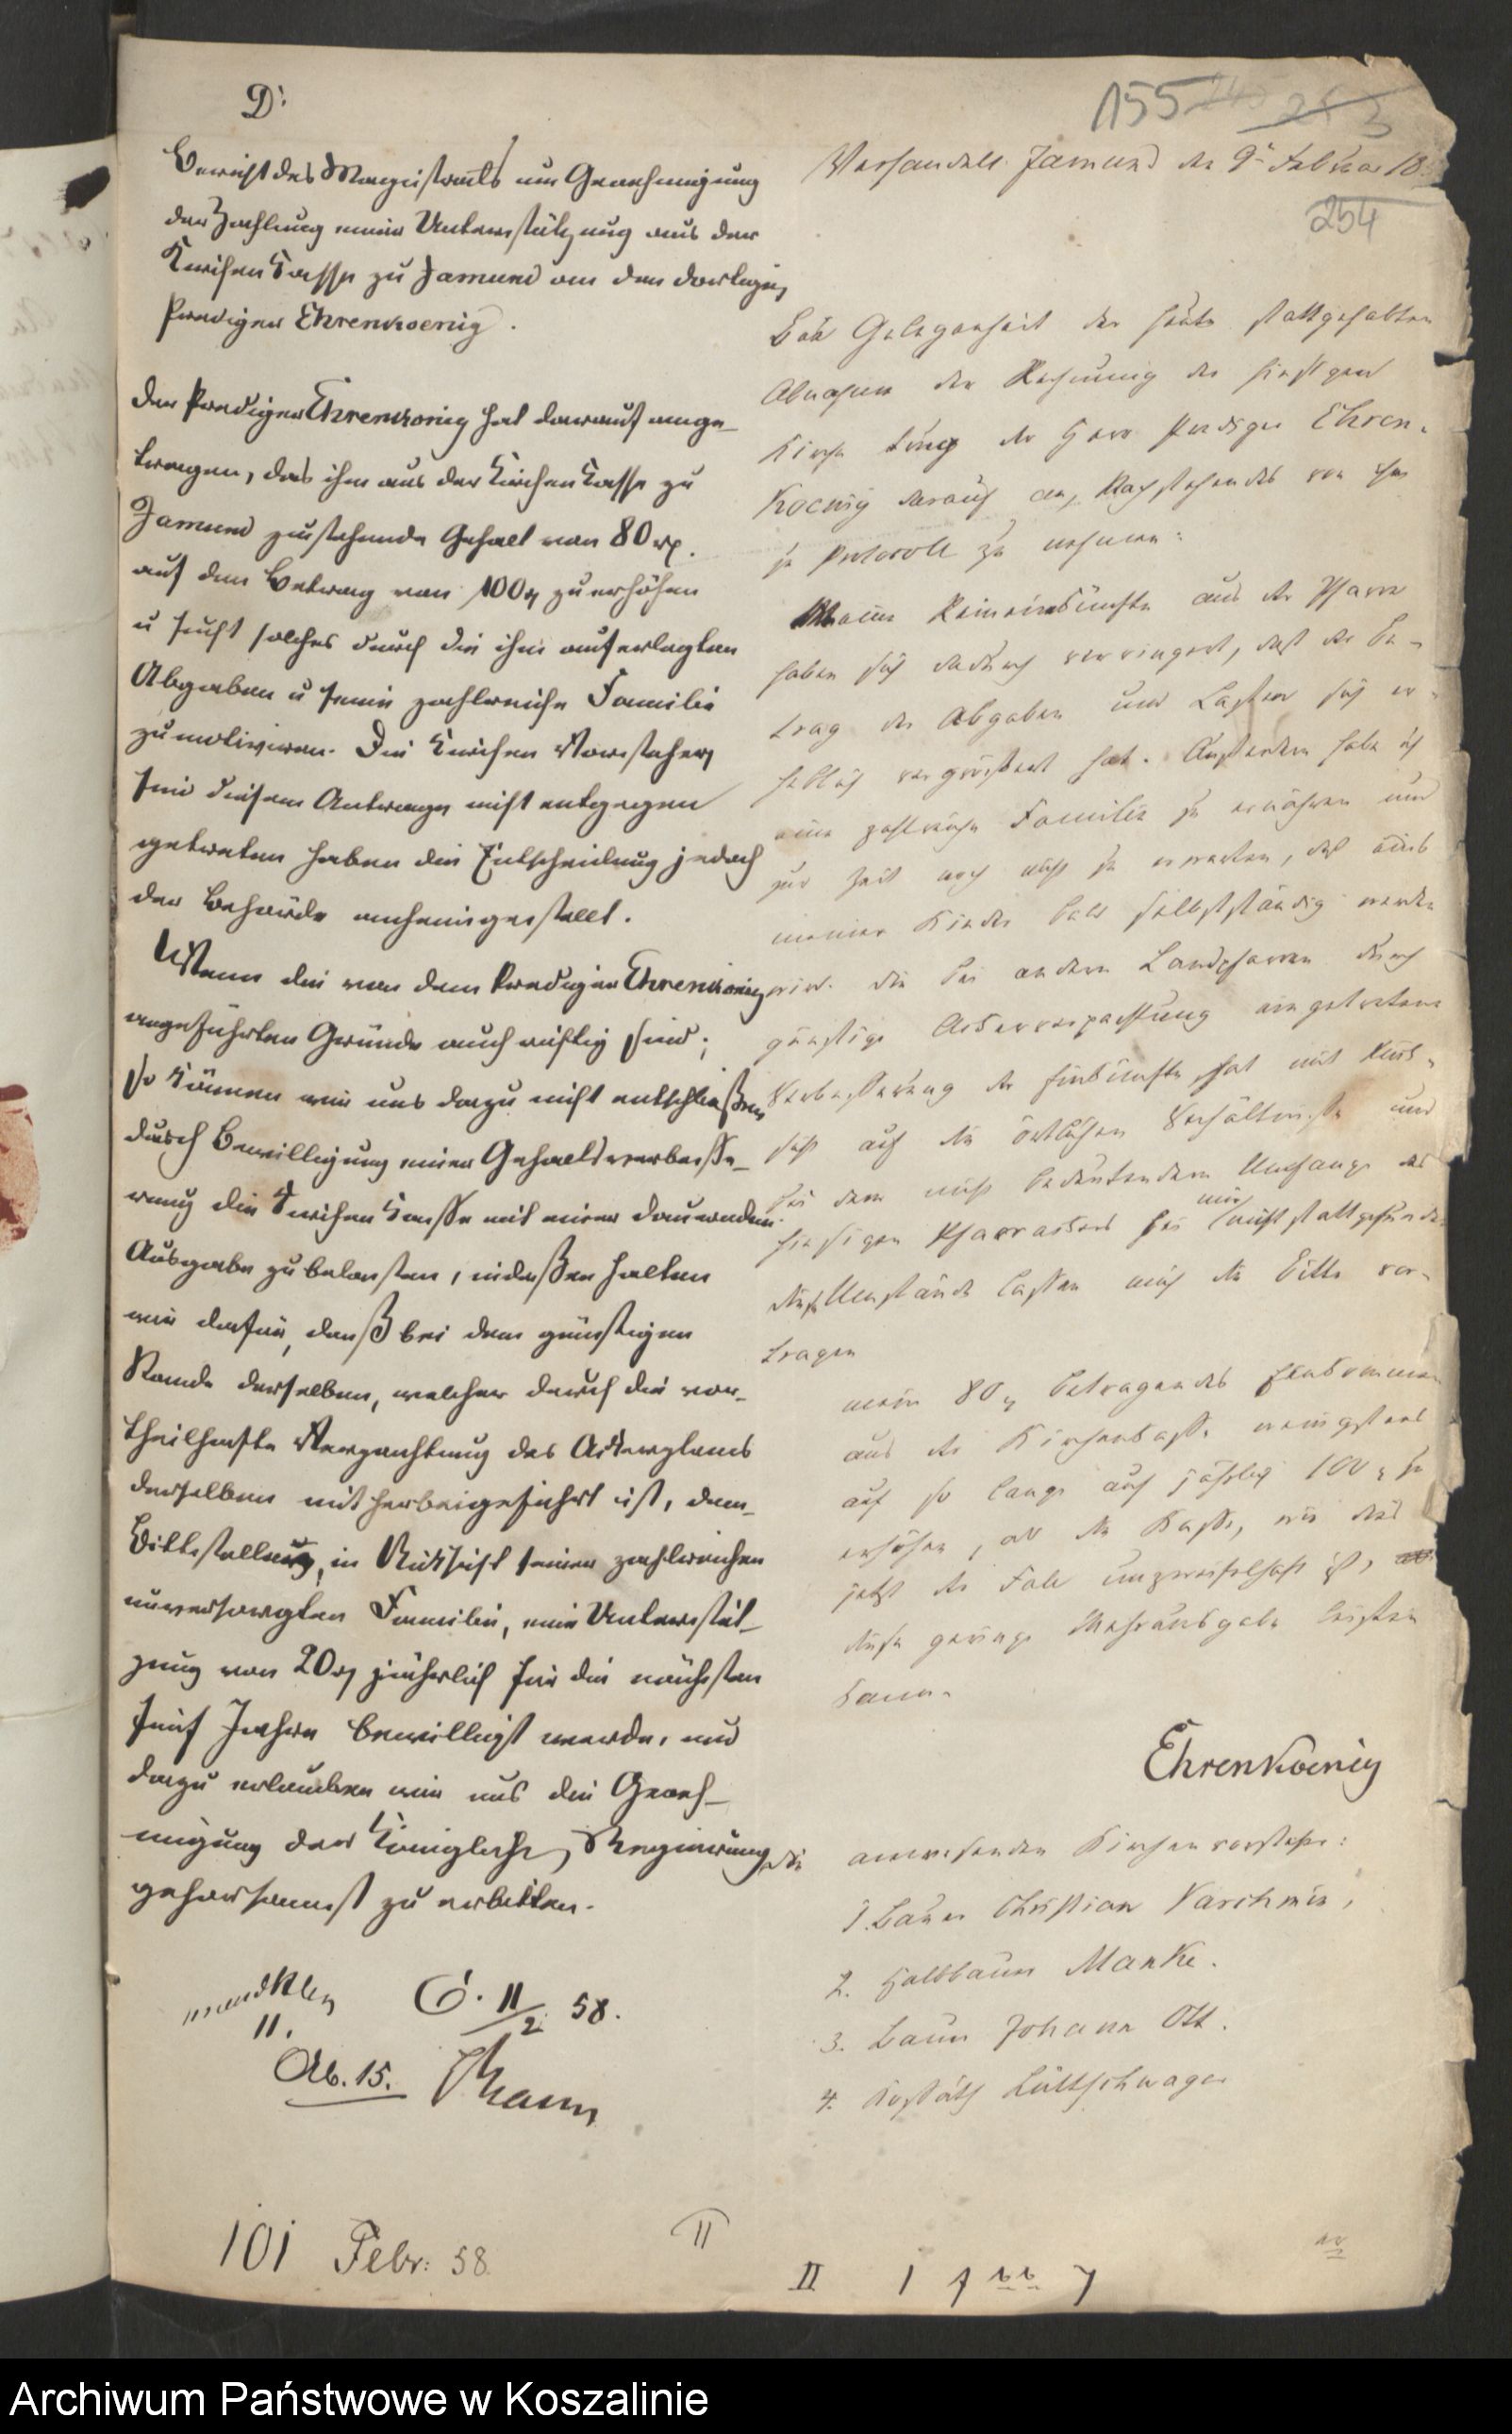 D:
Bericht des Magistrats um Genehmigung
der Zahlung einer Unterstützung aus der
Kirchen Kasse zu Jamund an den dortigen
Prediger Ehrenkoenig.
Der Prediger Ehrenkönig hat darauf ange-
tragen, das ihm aus der Kirchen Kasse zu
Jamund zustehende Gehalt von 80 rℓ.
auf den Betrag von 100 rℓ zu erhöhen
u sucht solches durch die ihm auferlegten
Abgaben u seine zahlreiche Familie
zu motiviren. Die Kirchen Vorsteher
sind diesem Antrage nicht entgegen
getreten haben die Entscheidung jedoch
der Behörde anheimgestellt.
Wenn die von dem Prediger Ehrenkönig
angeführten Gründe auch richtig sind;
so können wir uns dazu nicht entschließen
durch Bewilligung einer Gehaltsverbesse-
rung die Kirchen Kasse mit einer dauernden
Ausgabe zu belasten, indeßen halten
wir dafür, daß bei dem günstigen
Stande derselben, welcher durch die vor-
theilhafte Verpachtung des Ackerplans
derselben mit herbeigeführt ist, dem
Bittsteller, in Rücksicht seiner zahlreichen
unversorgten Familie, eine Unterstüt-
zung von 20 rℓ jährlich für die nächsten
fünf Jahre bewilligt werde, und
dazu erlauben wir uns die Geneh-
migung der Königlichen Regierung
gehorsamst zu erbitten.
C. 11/2 58.
11.
Ab. 15.
101 Febr: 58.
II
155
253
254
Verhandelt Jamund den 9ten Februar 18
Bei Gelegenheit der heute stattgehabten
Abnahme der Rechnung der hiesigen
Kirche trug der Herr Prediger Ehren-
koenig darauf an, Nachstehendes von ihm
zu Protocoll zu nehmen:
Meine Einkünfte aus der Pfarre
haben sich dadurch verringert, daß der Be-
trag der Abgaben und Lasten sich er-
heblich vergrößert hat. Außerdem habe ich
eine zahlreiche Familie zu ernähren und
zur Zeit noch nicht zu erwarten, daß eins
meiner Kinder bald selbstständig werden
wird. Die bei andern Landpfarren durch
günstige Ackerverpachtung eingetretene
Verbesserung der Einkünfte, hat mit Rück-
sicht auf die örtlichen Verhältnisse und
bei dem nicht bedeutenden Umfange des
hiesigen Pfarrackers bei mir nicht stattgefunden
diese Umstände lassen mich die Bitte vor-
tragen
mein 80 rℓ betragendes Einkommen
aus der Kirchenkasse wenigstens
auf so lange auf jährlich 100 rℓ zu
erhöhen, als die Kasse, wie dies
jetzt der Fall unzweifelhaft ist,
diese geringe Mehrausgabe leisten
kann.
Ehrenkoenig
die anwesenden Kirchenvorsteher:
1. Bauer Christian Varchmin,
2. Halbbauer Manke.
3. Bauer Johann Ott.
4. Kossäth Lüttschwager
II
Archiwum Państwowe w Koszalinie